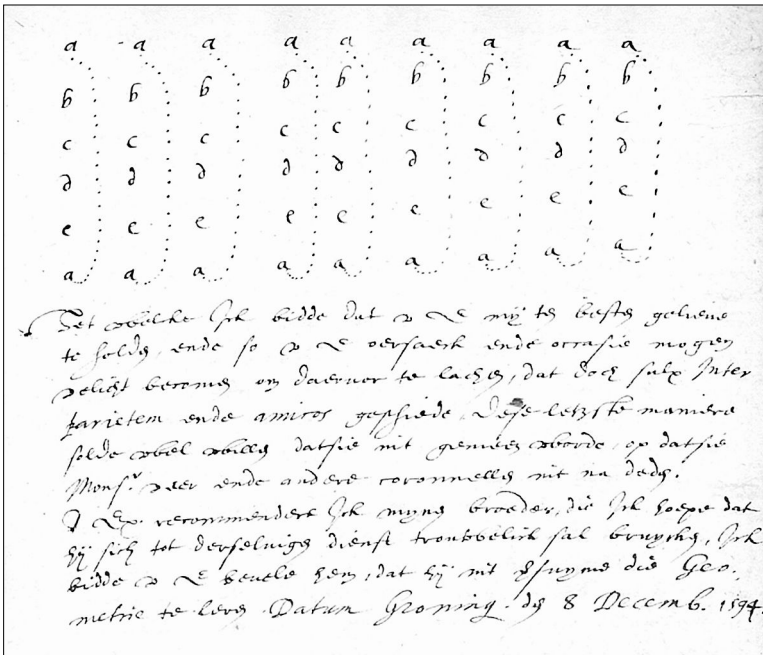 a a a a a a a a a
b b b b b b b b b
c c c c c c c c c
d d d d d d d d d
e e e e e e e e e
a a a a a a a a a
Het welke Ick bidde dat v E my ten besten gelieue
te holden, ende so v E oersaeck ende occasie mogen
velicht becomen om daerover te lachen, dat doch sulx Inter
parietem ende amicos geschiede. Dese letzste maniere
solde wel willen datsie nit gemeen worde, op datsie
Monsr. veer ende andere coronnellen nit na deden.
V Ex. recommendere Ick mynen broeder, die Ick hoepe dat
hy sich tot derselvigen dienst trouwelick sal bruycken, Ick
bidde v E bevele hem, dat hy nit versuyme die Geo-
metrie te leren. Datum Groning. den 8 Decemb. 1594.